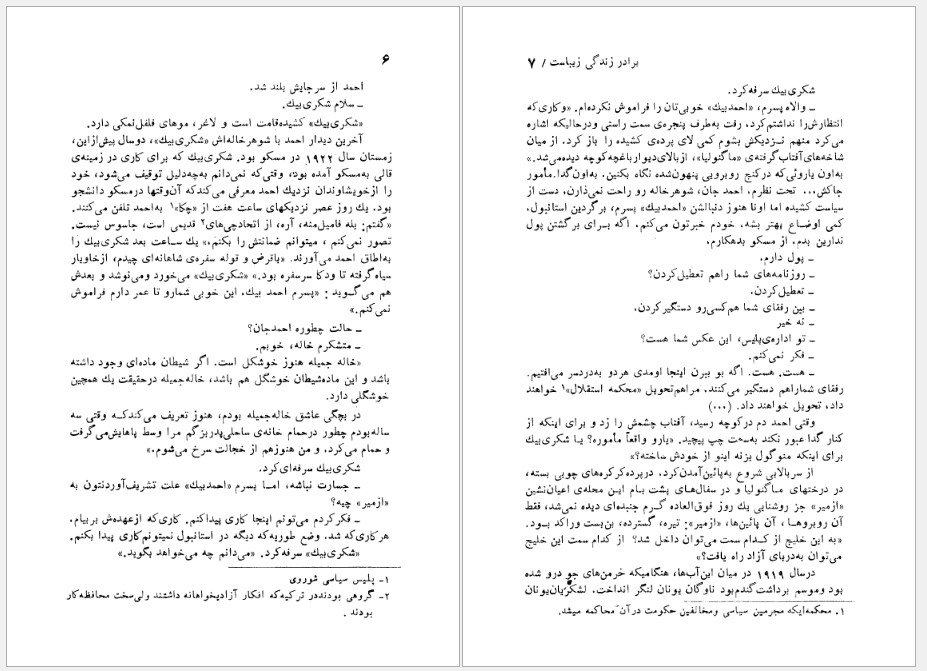 ۶
احمد از سرجایش بلند شد.
ـ سلام شکری‌بیك.
«شکری‌بیك» کشیده‌قامت است و لاغر، موهای فلفل‌نمکی دارد.
آخرین دیدار احمد با شوهرخاله‌اش «شکری‌بیك»، دوسال پیش‌ازاین،
زمستان سال ۱۹۲۲ در مسکو بود. شکری‌بیك که برای کاری در زمینه‌ی
قالی به‌مسکو آمده بود، وقتی‌که نمی‌دانم به‌چه‌دلیل توقیف می‌شود، خود
را ازخویشاوندان نزدیك احمد معرفی می‌کندکه آن‌وقتها درمسکو دانشجو
بود. یك روز عصر نزدیکهای ساعت هفت از «چکا»۱ به‌احمد تلفن می‌کنند.
«گفتم: بله فامیل‌منه، آره، از اتحادچی‌های۲ قدیمی است، جاسوس نیست.
تصور نمی‌کنم ، میتوانم ضمانتش را بکنم.» یك ساعت بعد شکری‌بیك را
به‌اطاق احمد می‌آورند. «باقرض و قوله سفره‌ی شاهانه‌ای چیدم، ازخاویار
سیاه گرفته تا ودکا سرسفره بود.» «شکری‌بیك» می‌خورد ومی‌نوشد و بعدش
هم می‌گـوید : «پسرم احمد بیك. این خوبی شمارو تا عمر دارم فراموش
نمی‌کنم.»
ـ حالت چطوره احمدجان؟
ـ متشکرم خاله، خوبم.
«خاله جمیله هنوز خوشگل است. اگر شیطان ماده‌ای وجود داشته
باشد و این ماده‌شیطان خوشگل هم باشد، خاله‌جمیله درحقیقت یك همچین
خوشگلی دارد.
در بچگی عاشق خاله‌جمیله بودم، هنوز تعریف می‌کندکـه وقتی سه
ساله‌بودم چطور درحمام خانه‌ی ساحلی‌پدربزرگم مرا وسط پاهایش‌می‌گرفت
و حمام می‌کرد. و من هنوزهم از خجالت سرخ می‌شوم.»
شکری‌بیك سرفه‌ای‌کرد.
ـ جسارت نباشه، امـا پسرم «احمدبیك» علت تشریف‌آوردنتون به
«ازمیر» چیه؟
ـ فکرکردم می‌تونم اینجا کاری پیداکنم. کاری‌که ازعهده‌ش بربیام.
هرکاری‌که شد. وضع طوریه‌که دیگه در استانبول نمیتونم‌کاری پیدا بکنم.
«شکری‌بیك» سرفه‌کرد. «می‌دانم چه می‌خواهد بگوید.»
۱- پلیس سیاسی شوروی
۲- گروهی بودنددر ترکیه‌که افکار آزادیخواهانه داشتند ولی‌سخت محافظه‌کار
بودند .
برادر زندگی زیباست / ۷
شکری‌بیك سرفه‌کرد.
ـ والاه پسرم، «احمدبیك» خوبی‌تان را فراموش نکرده‌ام. «وکاری‌که
انتظارش‌را نداشتم‌کرد، رفت به‌طرف پنجره‌ی سمت راستی ودرحالیکه اشاره
می‌کرد منهم نـزدیکش بشوم کمی لای پرده‌ی کشیده را باز کرد. از میان
شاخه‌های‌آفتاب‌گرفته‌ی «ماگنولیا»، ازبالای‌دیوارباغچه‌کوچه دیده‌می‌شد.»
به‌اون یاروئی‌که درکنج روبرویی پنهون‌شده، نگاه بکنین. به‌اون‌گدا.مأمور
جاکش... تحت نظرم، احمد جان، شوهرخاله رو راحت نمی‌ذارن، دست از
سیاست کشیده اما اونا هنوز دنبالشن «احمدبیك» پسرم، برگردین استانبول.
کمی اوضـاع بهتر بشه، خودم خبرتون می‌کنم. اگه بـرای برگشتن پول
ندارین بدم. از مسکو بدهکارم.
ـ پول دارم.
ـ روزنامه‌های شما راهم تعطیل‌کردن؟
ـ تعطیل‌کردن.
ـ بین رفقای شما هم‌کسی‌رو دستگیرکردن.
ـ نه خیر
ـ تو اداره‌ی‌پلیس، این عکس شما هست؟
ـ فکر نمی‌کنم.
ـ هست. هست. اگه بو ببرن اینجا اومدی هردو به‌دردسر می‌افتیم.
رفقای شماراهم دستگیر می‌کنند. مراهم‌تحویل «محکمه استقلال»۱ خواهند
داد، تحویل خواهند داد. (...)
وقتی احمد دم درکوچه رسید، آفتاب چشمش را زد و برای اینکه از
کنار گداعبور نکند به‌سمت چپ پیچید. «یارو واقعاً مأموره؟ یـا شکری‌بیك
برای اینکه منوگول بزنه اینو از خودش ساخته؟»
از سربالایی شروع به‌پائین‌آمدن‌کرد. درپرده‌کرکره‌های چوبی بسته،
در درختهای مـاگنولیا و در سفال‌هـای پشت بـام ایـن محله‌ی اعیان‌نشین
«ازمیر» جز روشنایی یك روز فوق‌العاده گـرم جنبده‌ای دیده نمی‌شد، فقط
آن روبروهـا ، آن پائین‌ها، «ازمیر»: تیره، گسترده، بن‌بست وراکد بـود.
«به این خلیج از کـدام سمت می‌توان داخل شد؟ از کدام سمت این خلیج
می‌توان به‌دریای آزاد راه یافت؟»
درسال ۱۹۱۹ در میان این‌آب‌ها، هنگامیکه خرمن‌های جو درو شده
بود وموسم برداشت‌گندم‌بود ناوگان یونان لنگر انداخت. لشکریان‌یونان
۱. محکمه‌ایکه مجرمین سیاسی ومخالفین حکومت درآن محاکمه میشد.